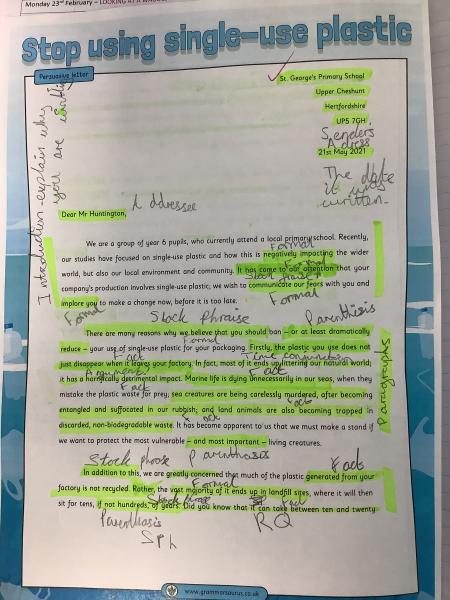 Monday 23rd February – LOOKING AT A
Stop using single-use plastic
Persuasive letter
St. George's Primary School
Upper Cheshunt
Hertfordshire
UP5 7GH,
Senders
Adress
21st May 2021
The date
it was
written.
Introduction-explain why
you are
Addressee
Dear Mr Huntington,
We are a group of year 6 pupils, who currently attend a local primary school. Recently,
Formal
our studies have focused on single-use plastic and how this is negatively impacting the wider
Formal
world, but also our local environment and community. It has come to our attention that your
Stock Phrase
company's production involves single-use plastic; we wish to communicate our fears with you and
implore you to make a change now, before it is too late.
Formal
Formal
Stock Phraise
Parenthisis
There are many reasons why we believe that you should ban – or at least dramatically
Formal
reduce – your use of single-use plastic for your packaging. Firstly, the plastic you use does not
Fact
Time conjunction
just disappear when it leaves your factory. In fact, most of it ends up littering our natural world;
Fact
it has a horrifically detrimental impact. Marine life is dying unnecessarily in our seas, when they
Fact
mistake the plastic waste for prey; sea creatures are being carelessly murdered, after becoming
Fact
entangled and suffocated in our rubbish; and land animals are also becoming trapped in
Fact
discarded, non-biodegradable waste. It has become apparent to us that we must make a stand if
we want to protect the most vulnerable – and most important – living creatures.
Paragraphs
Stock phrose
Parenthasis
Fact
In addition to this, we are greatly concerned that much of the plastic generated from your
Formal
factory is not recycled. Rather, the vast majority of it ends up in landfill sites, where it will then
Stock phrase
Fact
sit for tens, if not hundreds, of years. Did you know that it can take between ten and twenty
Parenthasis
RQ
Sph
www.grammarsaurus.co.uk